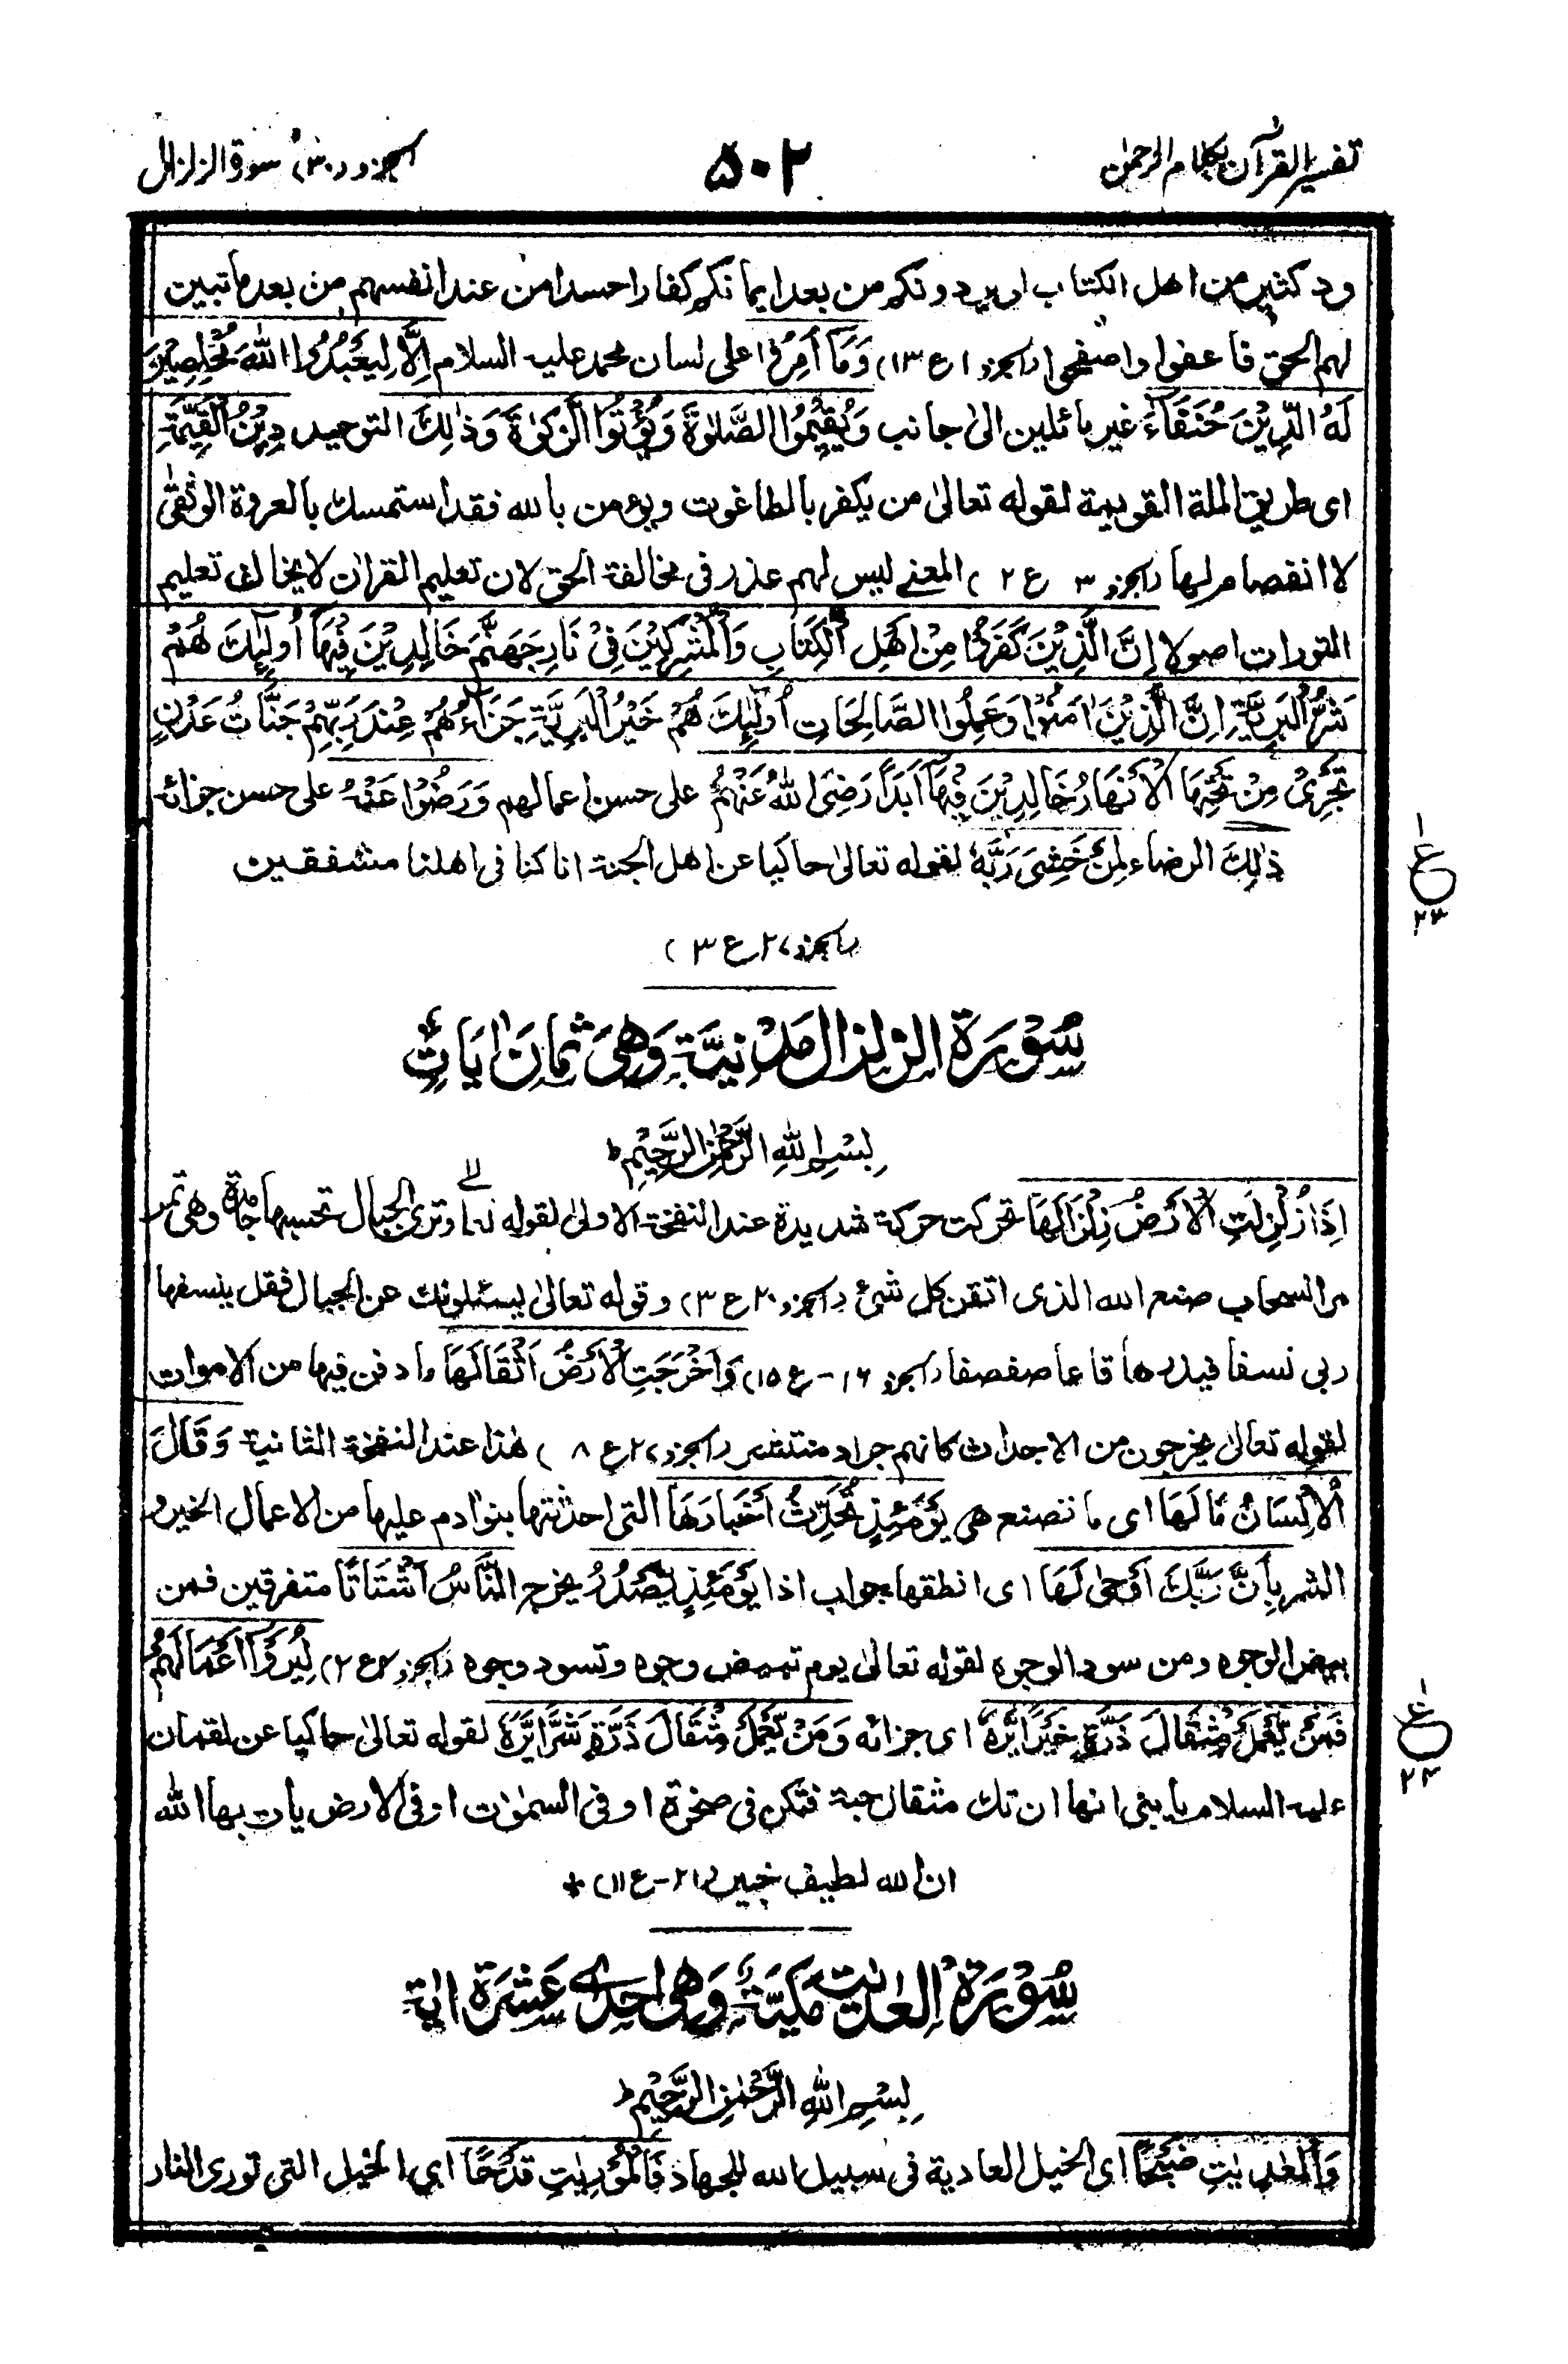 تفسير القرآن بكلام الرحمٰن
۵۰۲
الجزو (۳۰) سورة الزلزال
ود كثير من اهل الكتاب لو يردونكم من بعد ايمانكم كفارا حسدا من عند انفسهم من بعد ما تبين
لهم الحق فاعفوا واصفحوا (الجزو ۱ ع ۱۳) وَمَآ اُمِرُوْا على لسان محمد عليه السلام اِلَّا لِيَعْبُدُوا اللّٰهَ مُخْلِصِيْنَ
لَهُ الدِّيْنَ حُنَفَآءَ غير مائلين الىٰ جانب وَيُقِيْمُوا الصَّلٰوةَ وَيُؤْتُوا الزَّكٰوةَ وَذٰلِكَ التوحيد دِيْنُ الْقَيِّمَةِ
اى طريق الملة القويمة لقوله تعالىٰ من يكفر بالطاغوت ويؤمن بالله فقد استمسك بالعروة الوثقىٰ
لا انفصام لها (الجزو ۳ ع ۲) المعنے ليس لهم عذر فى مخالفة الحق لان تعليم القراٰن لا يخالف تعليم
التورات اصولا اِنَّ الَّذِيْنَ كَفَرُوْا مِنْ اَهْلِ الْكِتَابِ وَالْمُشْرِكِيْنَ فِىْ نَارِ جَهَنَّمَ خَالِدِيْنَ فِيْهَآ اُولٰٓئِكَ هُمْ
شَرُّ الْبَرِيَّةِ اِنَّ الَّذِيْنَ اٰمَنُوْا وَعَمِلُوا الصَّالِحَاتِ اُولٰٓئِكَ هُمْ خَيْرُ الْبَرِيَّةِ جَزَآءُهُمْ عِنْدَ رَبِّهِمْ جَنَّاتُ عَدْنٍ
تَجْرِىْ مِنْ تَحْتِهَا الْاَنْهَارُ خَالِدِيْنَ فِيْهَآ اَبَدًا رَضِىَ اللّٰهُ عَنْهُمْ على حسن اعمالهم وَرَضُوْا عَنْهُ على حسن جزائه
ذٰلِكَ الرضاء لِمَنْ خَشِىَ رَبَّهٗ لقوله تعالىٰ حاكيا عن اهل الجنة انا كنا فى اهلنا مشفقين
(الجزو ۲۷ ع ۳)
ع
۲۳
سُوْرَةُ الزلزال مَدَنِيَّةٌ وَهِىَ ثَمَانَ اٰيَاتٍ
بِسْمِ اللّٰهِ الرَّحْمٰنِ الرَّحِيْمِ ط
اِذَا زُلْزِلَتِ الْاَرْضُ زِلْزَالَهَا تحركت حركة شديدة عند النفخة الاولىٰ لقوله تعالى وترى الجبال تحسبها جامدة وهى تمر
مر السحاب صنع الله الذى اتقن كل شئ (الجزو ۲۰ ع ۳) وقوله تعالىٰ يسئلونك عن الجبال فقل ينسفها
ربى نسفا فيذرها قاعا صفصفا (الجزو ۱۶ - ع ۱۵) وَاَخْرَجَتِ الْاَرْضُ اَثْقَالَهَا ما دفن فيها من الاموات
لقوله تعالىٰ يخرجون من الاجداث كانهم جراد منتشر (الجزو ۲۷ ع ۸) هٰذا عند النفخة الثانية وَقَالَ
الْاِنْسَانُ مَا لَهَا اى ما تصنع هى يَوْمَئِذٍ تُحَدِّثُ اَخْبَارَهَا التى احدثتها بنوآدم عليها من الاعمال الخير و
الشر بِاَنَّ رَبَّكَ اَوْحٰى لَهَا اى انطقها جواب اذا يَوْمَئِذٍ يَّصْدُرُ يخرج النَّاسُ اَشْتَاتًا متفرقين فمن
بيض الوجوه ومن سود الوجوه لقوله تعالىٰ يوم تبيض وجوه وتسود وجوه (الجزو ۴ ع ۲) لِيُرَوْا اَعْمَالَهُمْ
فَمَنْ يَّعْمَلْ مِثْقَالَ ذَرَّةٍ خَيْرًا يَّرَهٗ اى جزائه وَمَنْ يَّعْمَلْ مِثْقَالَ ذَرَّةٍ شَرًّا يَّرَهٗ لقوله تعالىٰ حاكيا عن لقمان
عليه السلام يا بنى انها ان تك مثقال حبة فتكن فى صخرة او فى السمٰوٰت او فى الارض يات بها الله
ان الله لطيف خبير (۲۱ - ع ۱۱) +
ع
۲۴
سُوْرَةُ الْعٰدِيٰتِ مَكِّيَّةٌ وَهِىَ اِحْدٰى عَشَرَةَ اٰيَة
بِسْمِ اللّٰهِ الرَّحْمٰنِ الرَّحِيْمِ ط
وَالْعٰدِيٰتِ ضَبْحًا اى الخيل العادية فى سبيل الله للجهاد فَالْمُوْرِيٰتِ قَدْحًا اى الخيل التى تورى النار